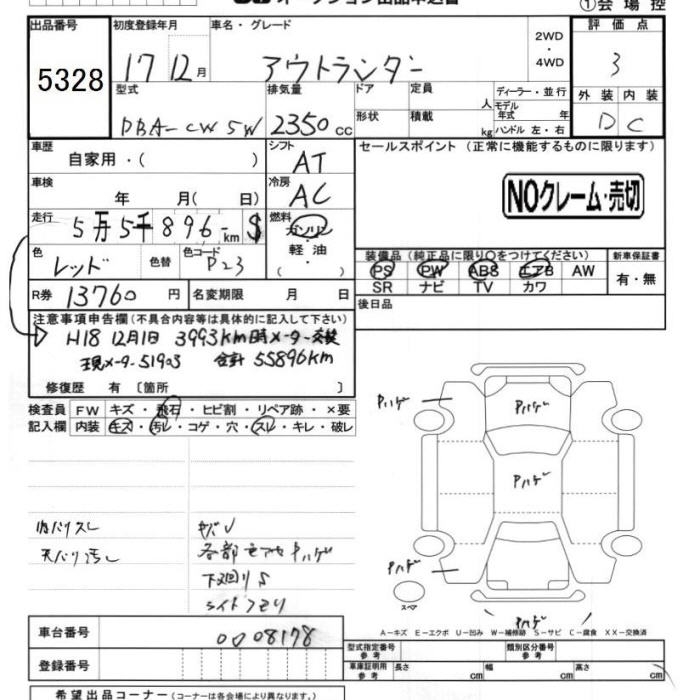 ①会場控
出品番号
5328
初度登録年月
17 12月
車名・グレード
アウトランダー
2WD
・
4WD
評価点
3
型式
DBA-CW5W
排気量
2350cc
ドア
形状
定員
人
積載
kg
ディーラー・並行
モデル
年式 年
ハンドル 左・右
外装 内装
D C
車歴
自家用・( )
シフト
AT
セールスポイント (正常に機能するものに限ります)
車検
年 月( 日)
冷房
AC
NOクレーム・売切
走行
5万5千896km $
燃料
ガソリン
・
軽油
( )
色
レッド
色替
色コード
P23
装備品(純正品に限り○をつけてください)
新車保証書
PS PW ABS エアB AW
SR ナビ TV カワ
有・無
R券
13760円
名変期限 月 日
後日品
注意事項申告欄(不具合内容等は具体的に記入して下さい)
H18 12月1日 3993km時メーター交換
現メーター51903 合計 55896km
修復歴 有 〔箇所 〕
検査員
記入欄
FW キズ・飛石・ヒビ割・リペア跡・×要
内装 キズ・汚レ・コゲ・穴・スレ・キレ・破レ
Pハゲ
Pハゲ
Pハゲ
Pハゲ
Pハゲ
スペア
内バリスレ
天バリ汚レ
キズU
下廻りS
ライトクモリ
A-キズ E-エクボ U-凹み W-補修跡 S-サビ C-腐食 XX-交換済
車台番号
0008178
登録番号
型式指定番号
参考
類別区分番号
参考
車庫証明用
参考
長さ cm
幅 cm
高さ cm
希望出品コーナー(コーナーは各会場により異なります。)